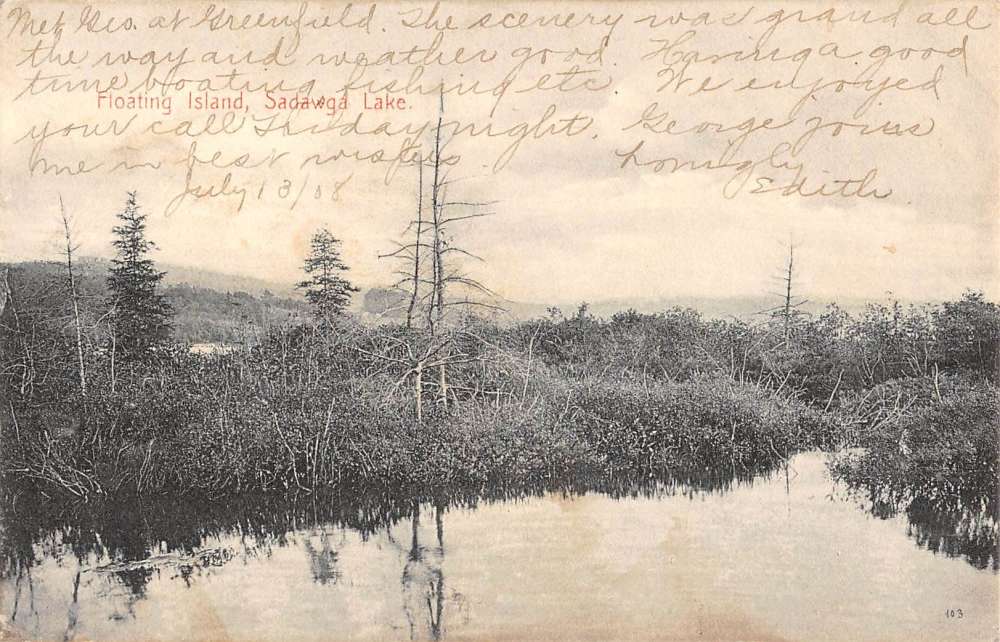 Met Geo. at Greenfield. The scenery was grand all
the way and weather good. Having a good
time boating fishing etc. We enjoyed
Floating Island, Sadawga Lake.
your call Friday night. George joins
me in best wishes. Lovingly
July 13/08 Edith
103